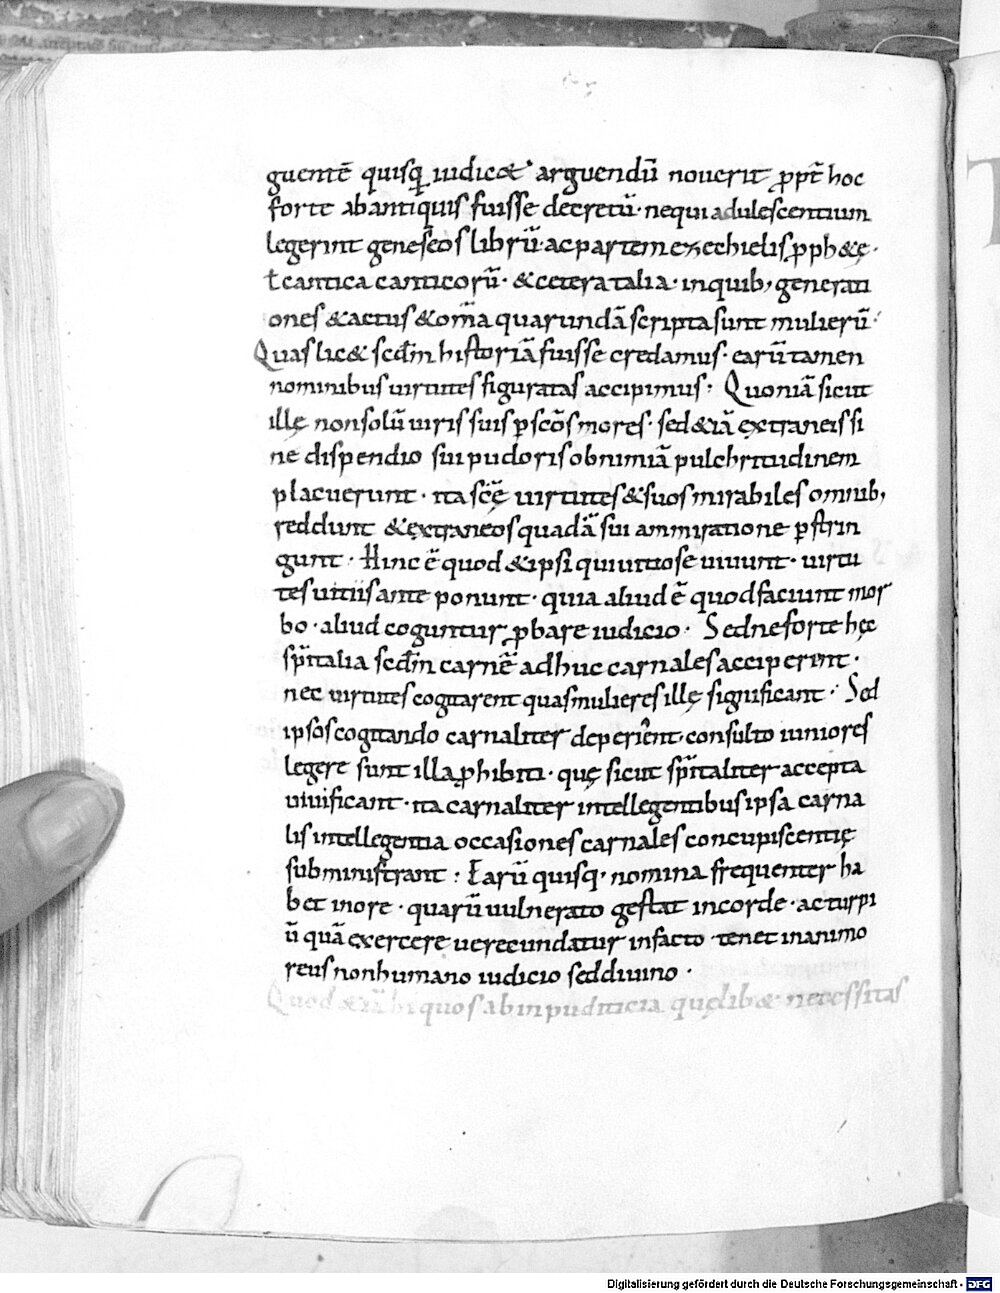 guentē quisq; iudicat arguendū nouerit ꝓpt̄ hoc
forte abantiquis fuisse decretū· nequi adulescentium
legerint geneseos librū· ac partem ezechielis ꝓph&ę·
ł cantica canticorū· & cetera talia· inquib; generati
ones & actus & om̄a quarundā scripta sunt mulierū·
Quas lic& scdm̄ historiā fuisse credamus· earū tamen
nominibus uirtutes figuratas accipimus; Quoniā sicut
illę non solū uiris suis ꝑ scōs mores· sed &iā extraneis si
ne dispendio sui pudoris ob nimiā pulchritudinem
placuerunt· ita scę̄ uirtutes & suos mirabiles omnib;
reddunt & extraneos quadā sui ammiratione ꝑstrin
gunt· Hinc ē quod & ipsi qui uitiose uiuunt· uirtu
tes uitiis ante ponunt· quia aliud ē quod faciunt mor
bo· aliud coguntur ꝓbare iudicio· Sed ne forte hęc
spītalia scdm̄ carnē adhuc carnales acciperent·
nec uirtutes cogitarent quas mulieres illę significant· Sed
ipsos cogitando carnaliter deperient· consulto iuniores
legere sunt illa ꝓhibiti· quę sicut spītaliter accepta
uiuificant· ita carnaliter intellegentibus ipsa carna
lis intellegentia occasiones carnales concupiscentię
subministrant; Earū quisq; nomina frequenter ha
bet in ore· quarū uulnerato gestat in corde· ac turpi
ū quā exercere uerecundatur in facto tenet in animo
reus non humano iudicio sed diuino·
Quod &iā hi quos ab inpuditicia quęlib& necessitas
Digitalisierung gefördert durch die Deutsche Forschungsgemeinschaft - DFG